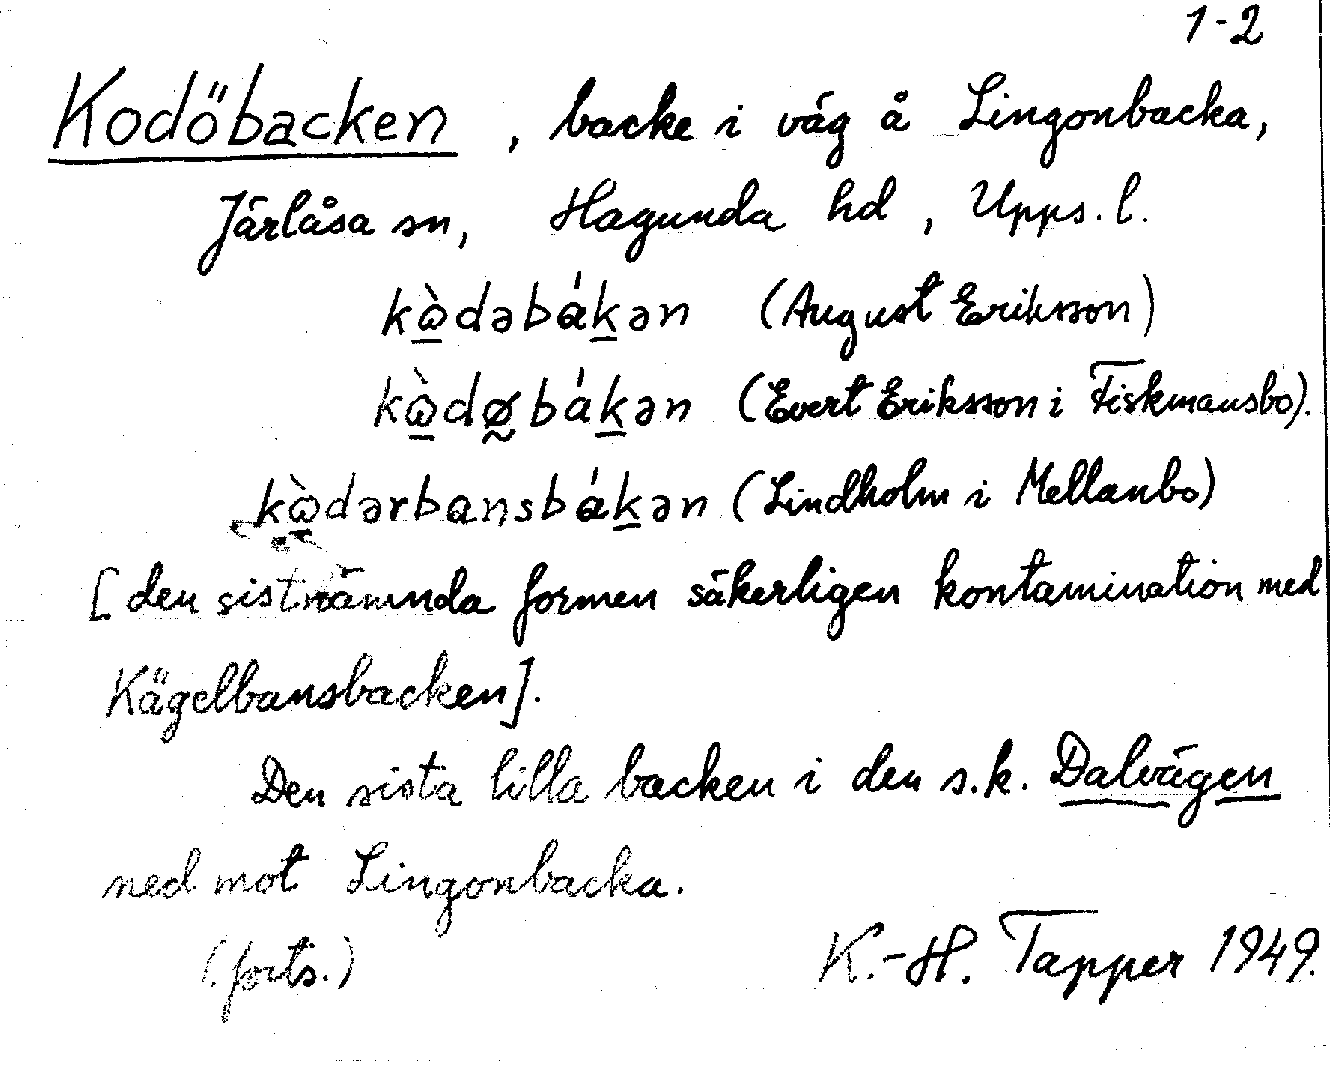 1-2
Kodöbacken, backe i väg å Lingonbacka,
Järlåsa sn, Hagunda hd, Upps. l.
kὼ̱dəbáḵən (August Eriksson)
kὼ̱dø̰báḵən (Evert Eriksson i Fiskmansbo).
kὼ̱dərbansbáḵən (Lindholm i Mellanbo)
[den sistnämnda formen säkerligen kontamination med
Kägelbansbacken].
Den sista lilla backen i den s.k. Dalvägen
ned mot Lingonbacka.
(forts.) K.-H. Tapper 1949.